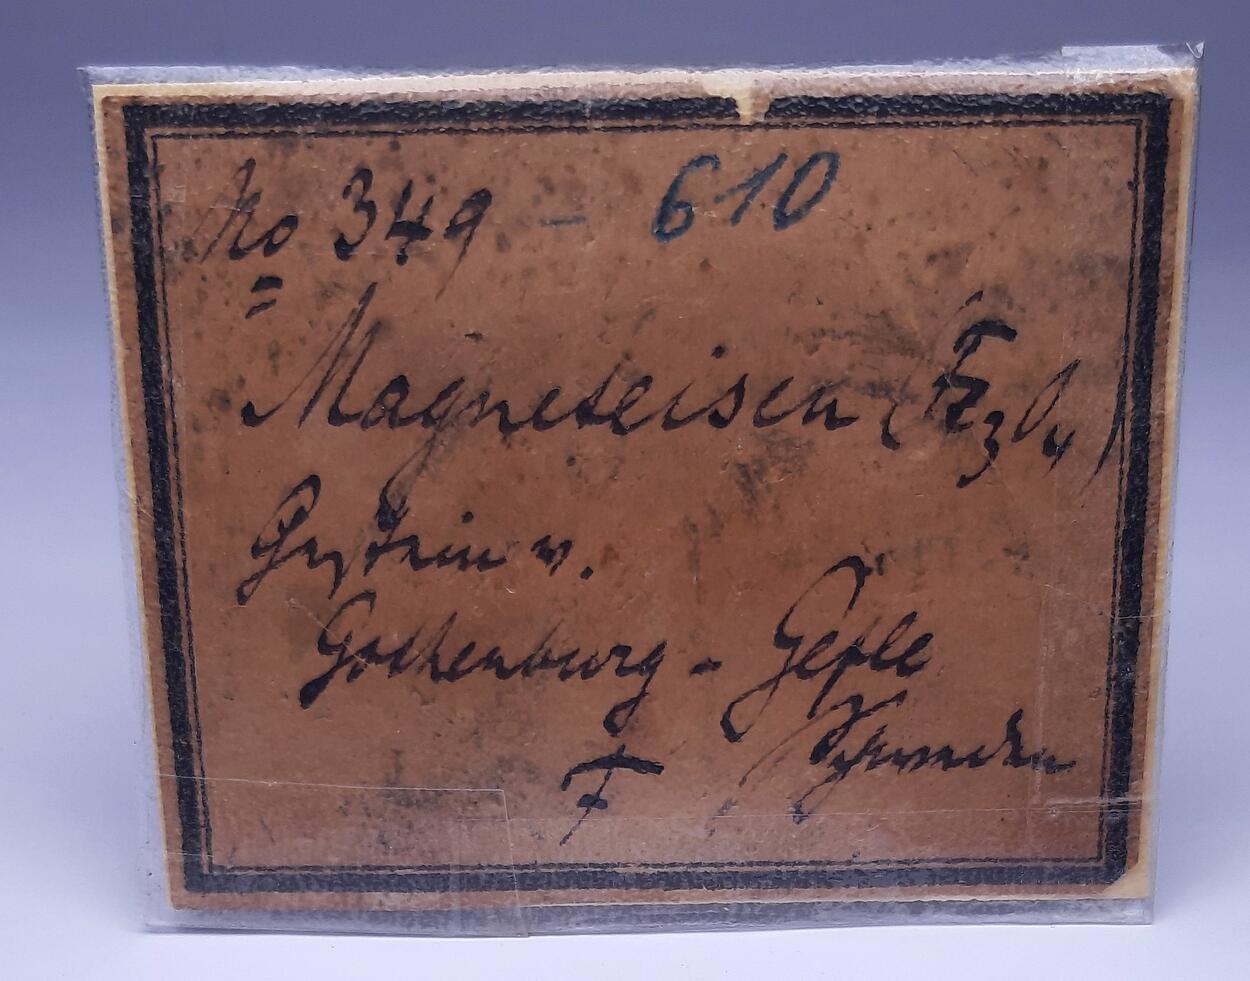 No 349 - 610
Magneteisen (Fe3O4)
Gestein v.
Gothenburg - Gefle
Schweden
F